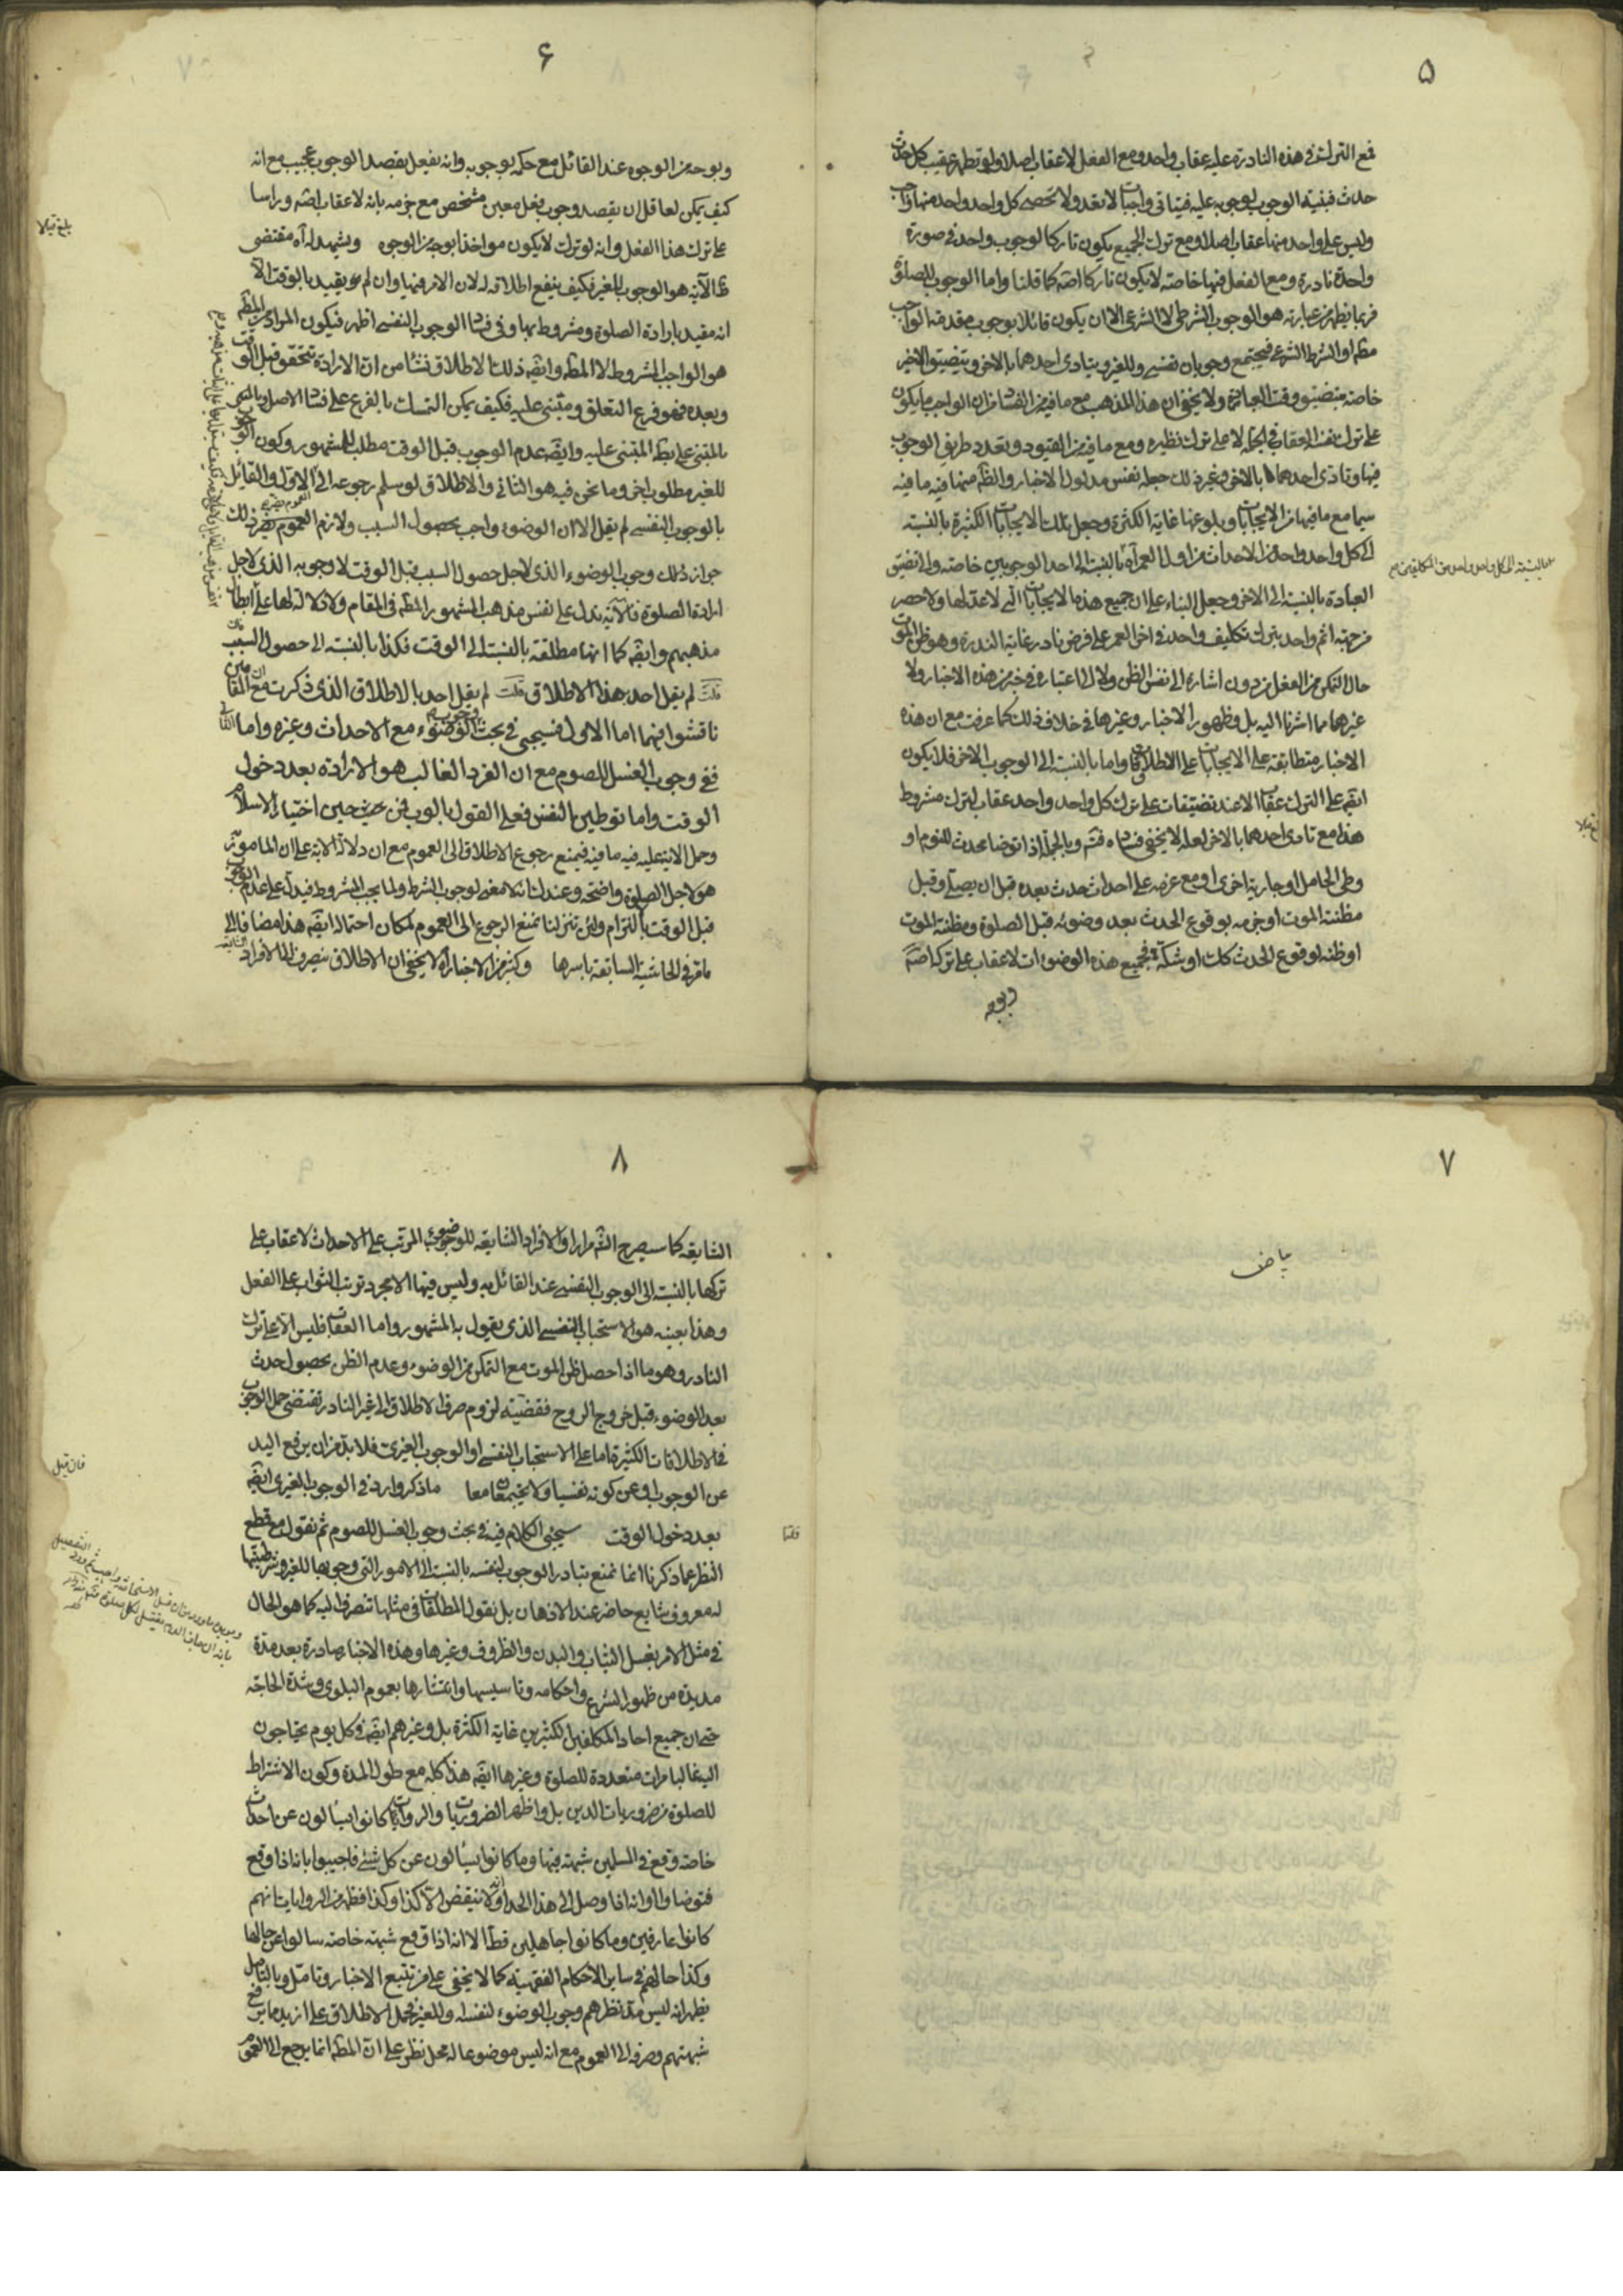 ۵
فمع الترك في هذه النادرة عليه عقاب واحد ومع الفعل لا عقاب اصلا ولو تطهر عقيب كل حدث
حدث فبنية الوجوب لوجوبه عليه فيتاتى واجبات لا تعد ولا تحصى كل واحد واحد منها واجب
وليس على واحد منها عقاب اصلا ومع ترك الجميع يكون تاركا لوجوب واحد في صورة
واحدة نادرة ومع الفعل فيها خاصة لا يكون تاركا اصلا كما قلنا واما الوجوب للصلوة
فربما يظهر من عبارته هو الوجوب الشرطي لا الشرعي الا ان يكون قائلا بوجوب مقدمة الواجب
مطلقا او الشرط الشرعي فيجتمع وجوبان نفسي وللغير ويتادى احدهما بالاخر ويتضيق الاخر
خاصة بتضيق وقت العبادة ولا يخفى ان هذا المذهب مع ما فيه من الفساد من ان الواجب ما يكون
على ترك نفسه العقاب في الجملة لا على ترك نظيره ومع ما فيه من القيود وتعدد طريق الوجوب
فيها وتادى احدهما بالاخر وغير ذلك جعله نفس مدلول الاخبار والظاهر منها فيه ما فيه
سيما مع ما فيها من الايجابات وبلوغها غاية الكثرة وجعل تلك الايجابات الكثيرة بالنسبة
الى كل واحد واحد من الاحداث من اول العمر الى بالنسبة الى احد الوجوبين خاصة والى تضيق
العبادة بالنسبة الى الاخر وجعل البناء على ان جميع هذه الايجابات التي لا عد لها ولا حصر
مزجية اثم واحد بترك تكليف واحد في اخر العمر على فرض نادر غاية الندرة وهو ظن الموت
حال التمكن من الفعل من دون اشارة الى نفس الظن ولا الى اعتباره في خبر من هذه الاخبار ولا
غيرها مما اشرنا اليه بل وظهور الاخبار وغيرها في خلاف ذلك كما عرفت مع ان هذه
الاخبار متطابقة على الايجابات على الاطلاق واما بالنسبة الى الوجوب الاخر فلا يكون
ايضا على الترك عقاب الا عند تضيقات على ترك كل واحد واحد عقاب لترك مشروط
هذا مع تادى احدهما بالاخر لعله لا يخفى فساده فتم وبالجملة اذا توضا محدث للنوم او
وطى الحامل او جارية اخرى او مع عزمه على احداث حدث بعده قبل ان يصلي وقبل
مظنة الموت او جزمه بوقوع الحدث بعد وضوئه قبل الصلوة ومظنة الموت
او ظنه لوقوع الحدث كك او شكه فجميع هذه الوضوءات لا عقاب على تركها اصلا
وبوجه
بالنسبة الى كل واحد واحد من المكلفين مع
۶
وبوجه من الوجوه عند القائل مع حكمه بوجوبه وانه يفعل بقصد الوجوب عجيب مع انه
كيف يمكن لعاقل ان يقصد وجوب فعل معين مشخص مع جزمه بانه لا عقاب اصلا وراسا
على ترك هذا الفعل وانه لو ترك لا يكون مواخذا بوجه من الوجوه ويشهد له اه مقتضى
ظ الآية هو الوجوب للغير فكيف ينفع اطلاقه له لان الامر فيها وان لم يقيد بالوقت الا
انه مقيد بارادة الصلوة ومشروط بها وفي فساد الوجوب النفسي اظهر فيكون المراد من المطلق
هو الواجب المشروط لا المطلق وايضا ذلك الاطلاق نشا من ان الارادة تتحقق قبل الوقت
وبعده فهو فرع التعلق ومبتنى عليه فكيف يمكن التمسك بالفرع على فساد الاصل وبالمبتنى
بالمبتنى على بطلان المبتنى عليه وايضا عدم الوجوب قبل الوقت مطلب للمشهور وكون الوجوب
للغير مطلوب اخر وما نحن فيه هو الثاني والاطلاق لو سلم رجوعه الى الاول والقائل
بالوجوب النفسي لم يقل الا ان الوضوء واجب بحصول السبب ولازم العموم ذلك
جواز ذلك وجوب الوضوء الذي لاجل حصول السبب قبل الوقت لا وجوبه الذي لاجل
ارادة الصلوة فالآية تدل على نفس مذهب المشهور المطلق في المقام ولا دلالة لها على ابطال
مذهبهم وايضا كما انها مطلقة بالنسبة الى الوقت فكذا بالنسبة الى حصول السبب
قلت لم يقل احد بهذا الاطلاق قلت لم يقل احد بالاطلاق الذي ذكرت مع ان المقامين
ناقشوا فيهما اما الاول فسيجئ في بحث وجوب الوضوء مع الاحداث وغيره واما الثاني
ففي وجوب الغسل للصوم مع ان الفرد الغالب هو الارادة بعد دخول
الوقت واما توطين النفس فعلى القول بالوجوب فمن حين اختيار الاسلام
وحمل الآية عليه فيه ما فيه فيمنع رجوع الاطلاق الى العموم مع ان دلالة الاية على ان المامور به
هو لاجل الصلوة واضحة وعندنا انه لا معنى لوجوب الشرط ولما يجب المشروط فيدل على عدم الوجوب
قبل الوقت بالتزام ولئن تنزلنا نمنع الرجوع الى العموم لمكان احتماله ايضا هذا مضافا الى
ما مر في الحاشية السابقة باسرها وكثير من الاخبار اه لا يخفى ان الاطلاق ينصرف الى الافراد
۷
بياض
۸
الشايعة كما سيصرح الشارح مرارا والافراد الشايعة للوضوء المرتب على الاحداث لا عقاب على
تركها بالنسبة الى الوجوب النفسي عند القائل به وليس فيها الا مجرد ترتب الثواب على الفعل
وهذا بعينه هو الاستحباب النفسي الذي يقول به المشهور واما العقاب فليس الا على ترك
النادر وهو ما اذا حصل ظن الموت مع التمكن من الوضوء وعدم الظن بحصول حدث
بعد الوضوء قبل خروج الروح فقضية لزوم صرف الاطلاق الى غير النادر تقتضي حمل الوجوب
في الاطلاقات الكثيرة اما على الاستحباب النفسي او الوجوب الغيري فلا بد من ان يرفع اليد
عن الوجوب او عن كونه نفسيا ولا يجتمعان معا ما ذكر وارد في الوجوب الغيري ايضا
بعد دخول الوقت سيجئ الكلام فيه في بحث وجوب الغسل للصوم ثم نقول مع قطع
النظر عما ذكرنا انما نمنع تبادر الوجوب لنفسه بالنسبة الى الامور التي وجوبها للغير وشرطيتها
له معروف شايع حاضر عند الاذهان بل نقول المطلقات في مثلها تنصرف اليه كما هو الحال
في مثل الامر بغسل الثياب والبدن والظروف وغيرها وهذه الاخبار صادرة بعد مدة
مديدة من ظهور الشرع واحكامه وتاسيسها وانتشارها بعموم البلوى وشدة الحاجة
حتى ان جميع احاد المكلفين الكثيرين غاية الكثرة بل وغيرهم ايضا في كل يوم يحتاجون
اليه غالبا مرات متعددة للصلوة وغيرها ايضا هذا كله مع طول المدة وكون الاشتراط
للصلوة من ضروريات الدين بل واظهر الضروريات والروات كانوا يسألون عن احداث
خاصة وقع في المسلمين شبهة فيها وما كانوا يسألون عن كل شئ فاجيبوا بانه اذا وقع
فتوضاوا وانه اذا وصل الى هذا الحد او لا ينقض الا كذا وكذا فظهر من الروايات انهم
كانوا عارفين وما كانوا جاهلين قط الا انه اذا وقع شبهة خاصة سالوا عن حالها
وكذا حالهم في ساير الاحكام الفقهية كما لا يخفى على من تتبع الاخبار وتامل وبالتامل
يظهر انه ليس مد نظرهم وجوب الوضوء لنفسه وللغير فحمل الاطلاق على ازيد مما يرفع
شبهتهم وصرفه الى العموم مع انه ليس موضوعا له محل نظر على ان المطلق انما يرجع الى العموم
فان قيل
قلنا